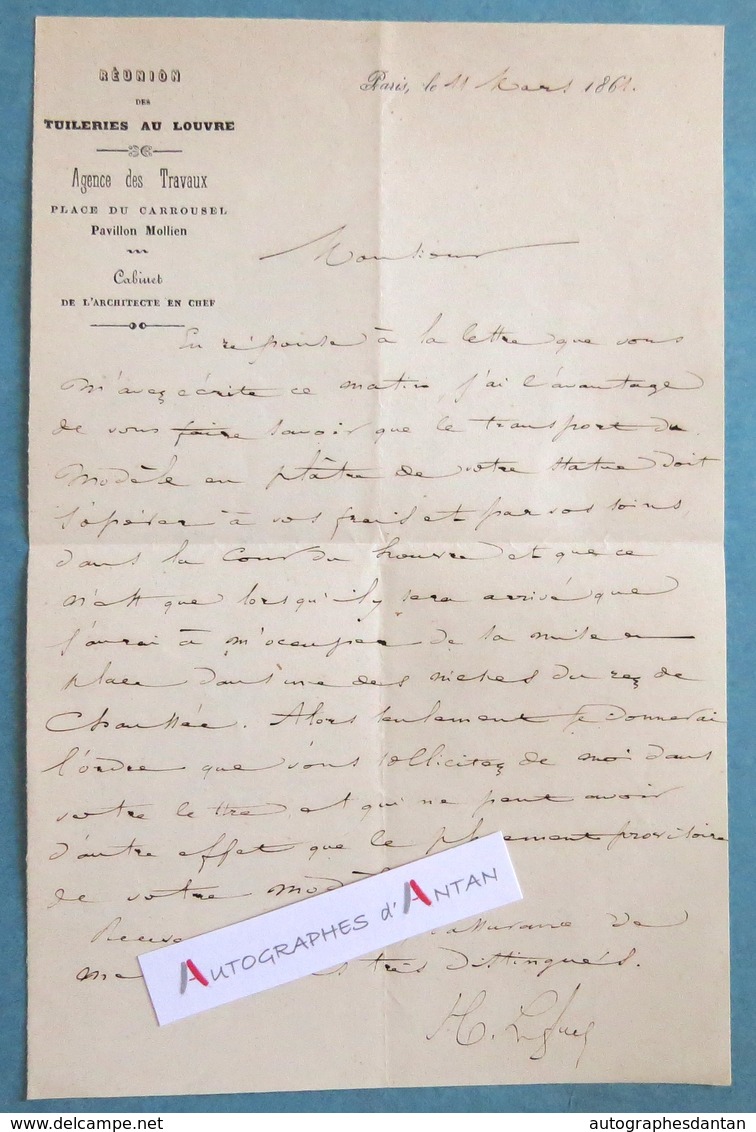 RÉUNION
DES
TUILERIES AU LOUVRE
Agence des Travaux
PLACE DU CARROUSEL
Pavillon Mollien
Cabinet
DE L'ARCHITECTE EN CHEF
Paris, le 11 Mars 1861.
Monsieur
En réponse à la lettre que vous
m'avez écrite ce matin, j'ai l'avantage
de vous faire savoir que le transport du
modèle en plâtre de votre statue doit
s'opérer à vos frais et par vos soins,
dans la Cour du Louvre et que ce
n'est que lorsqu'il y sera arrivé que
j'aurai à m'occuper de la mise en
place dans une des niches du rez de
Chaussée. Alors seulement je donnerai
l'ordre que vous sollicitez de moi dans
votre lettre, et qui ne peut avoir
d'autre effet que le placement provisoire
de votre
l'assurance de
très distingués.
H. Lefuel
AUTOGRAPHES d'ANTAN
autographesdantan